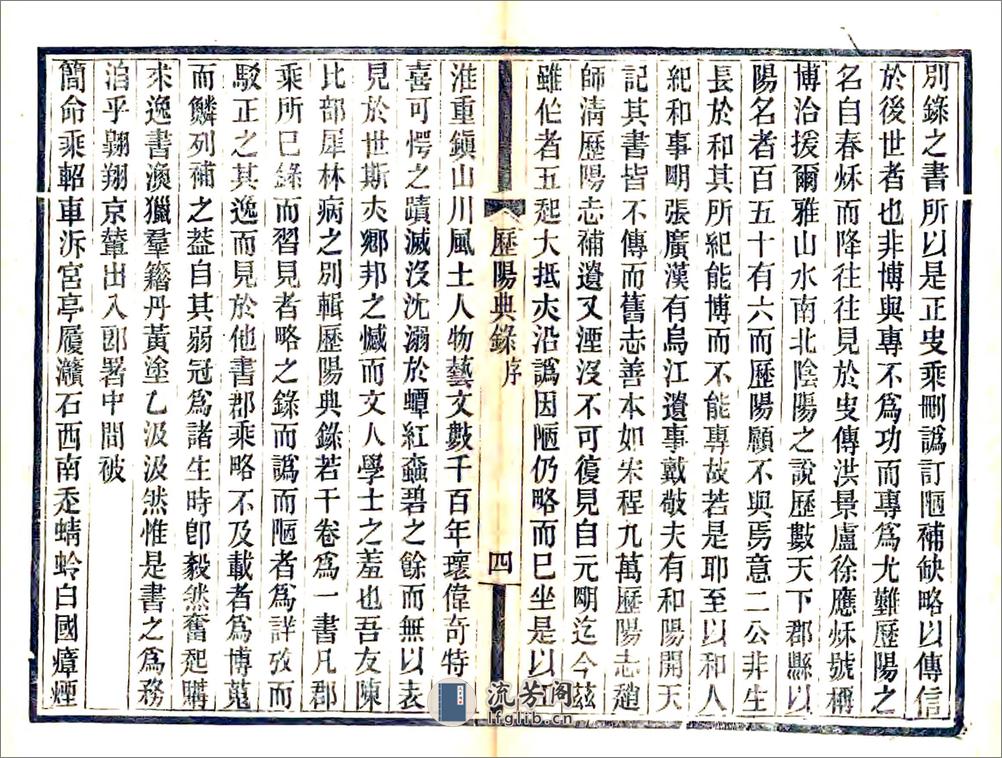 別錄之書所以是正㕜乘刪譌訂陋補缺略以傳信
於後世者也非博與專不爲功而專爲尤難歷陽之
名自春秌而降往往見於㕜傳洪景盧徐應秌號稱
博洽援爾雅山水南北陰陽之說歷數天下郡縣以
陽名者百五十有六而歷陽顧不與焉意二公非生
長於和其所紀能博而不能專故若是耶至以和人
紀和事明張廣漢有烏江遺事戴敬夫有和陽開天
記其書皆不傳而舊志善本如宋程九萬歷陽志趙
師淸歷陽志補遺又湮沒不可復見自元明迄今茲
雖作者五起大抵夾沿譌因陋仍略而已坐是以江
歷陽典錄 序 四
淮重鎭山川風土人物藝文數千百年瓌偉奇特
喜可愕之蹟滅沒沈溺於蟫紅蠡碧之餘而無以表
見於世斯夾鄉邦之憾而文人學士之羞也吾友陳
比部犀林病之別輯歷陽典錄若干卷爲一書凡郡
乘所已錄而習見者略之錄而譌而陋者爲詳攷而
駁正之其逸而見於他書郡乘略不及載者爲博蒐
而鱗列補之葢自其弱冠爲諸生時卽毅然奮起購
求逸書漁獵羣籒丹黃塗乙汲汲然惟是書之爲務
洎乎翺翔京輦出入郎署中間被
簡命乘軺車泝宮亭履灨石西南丞蜻蛉白國瘴煙
流芳阁
lfglib.cn